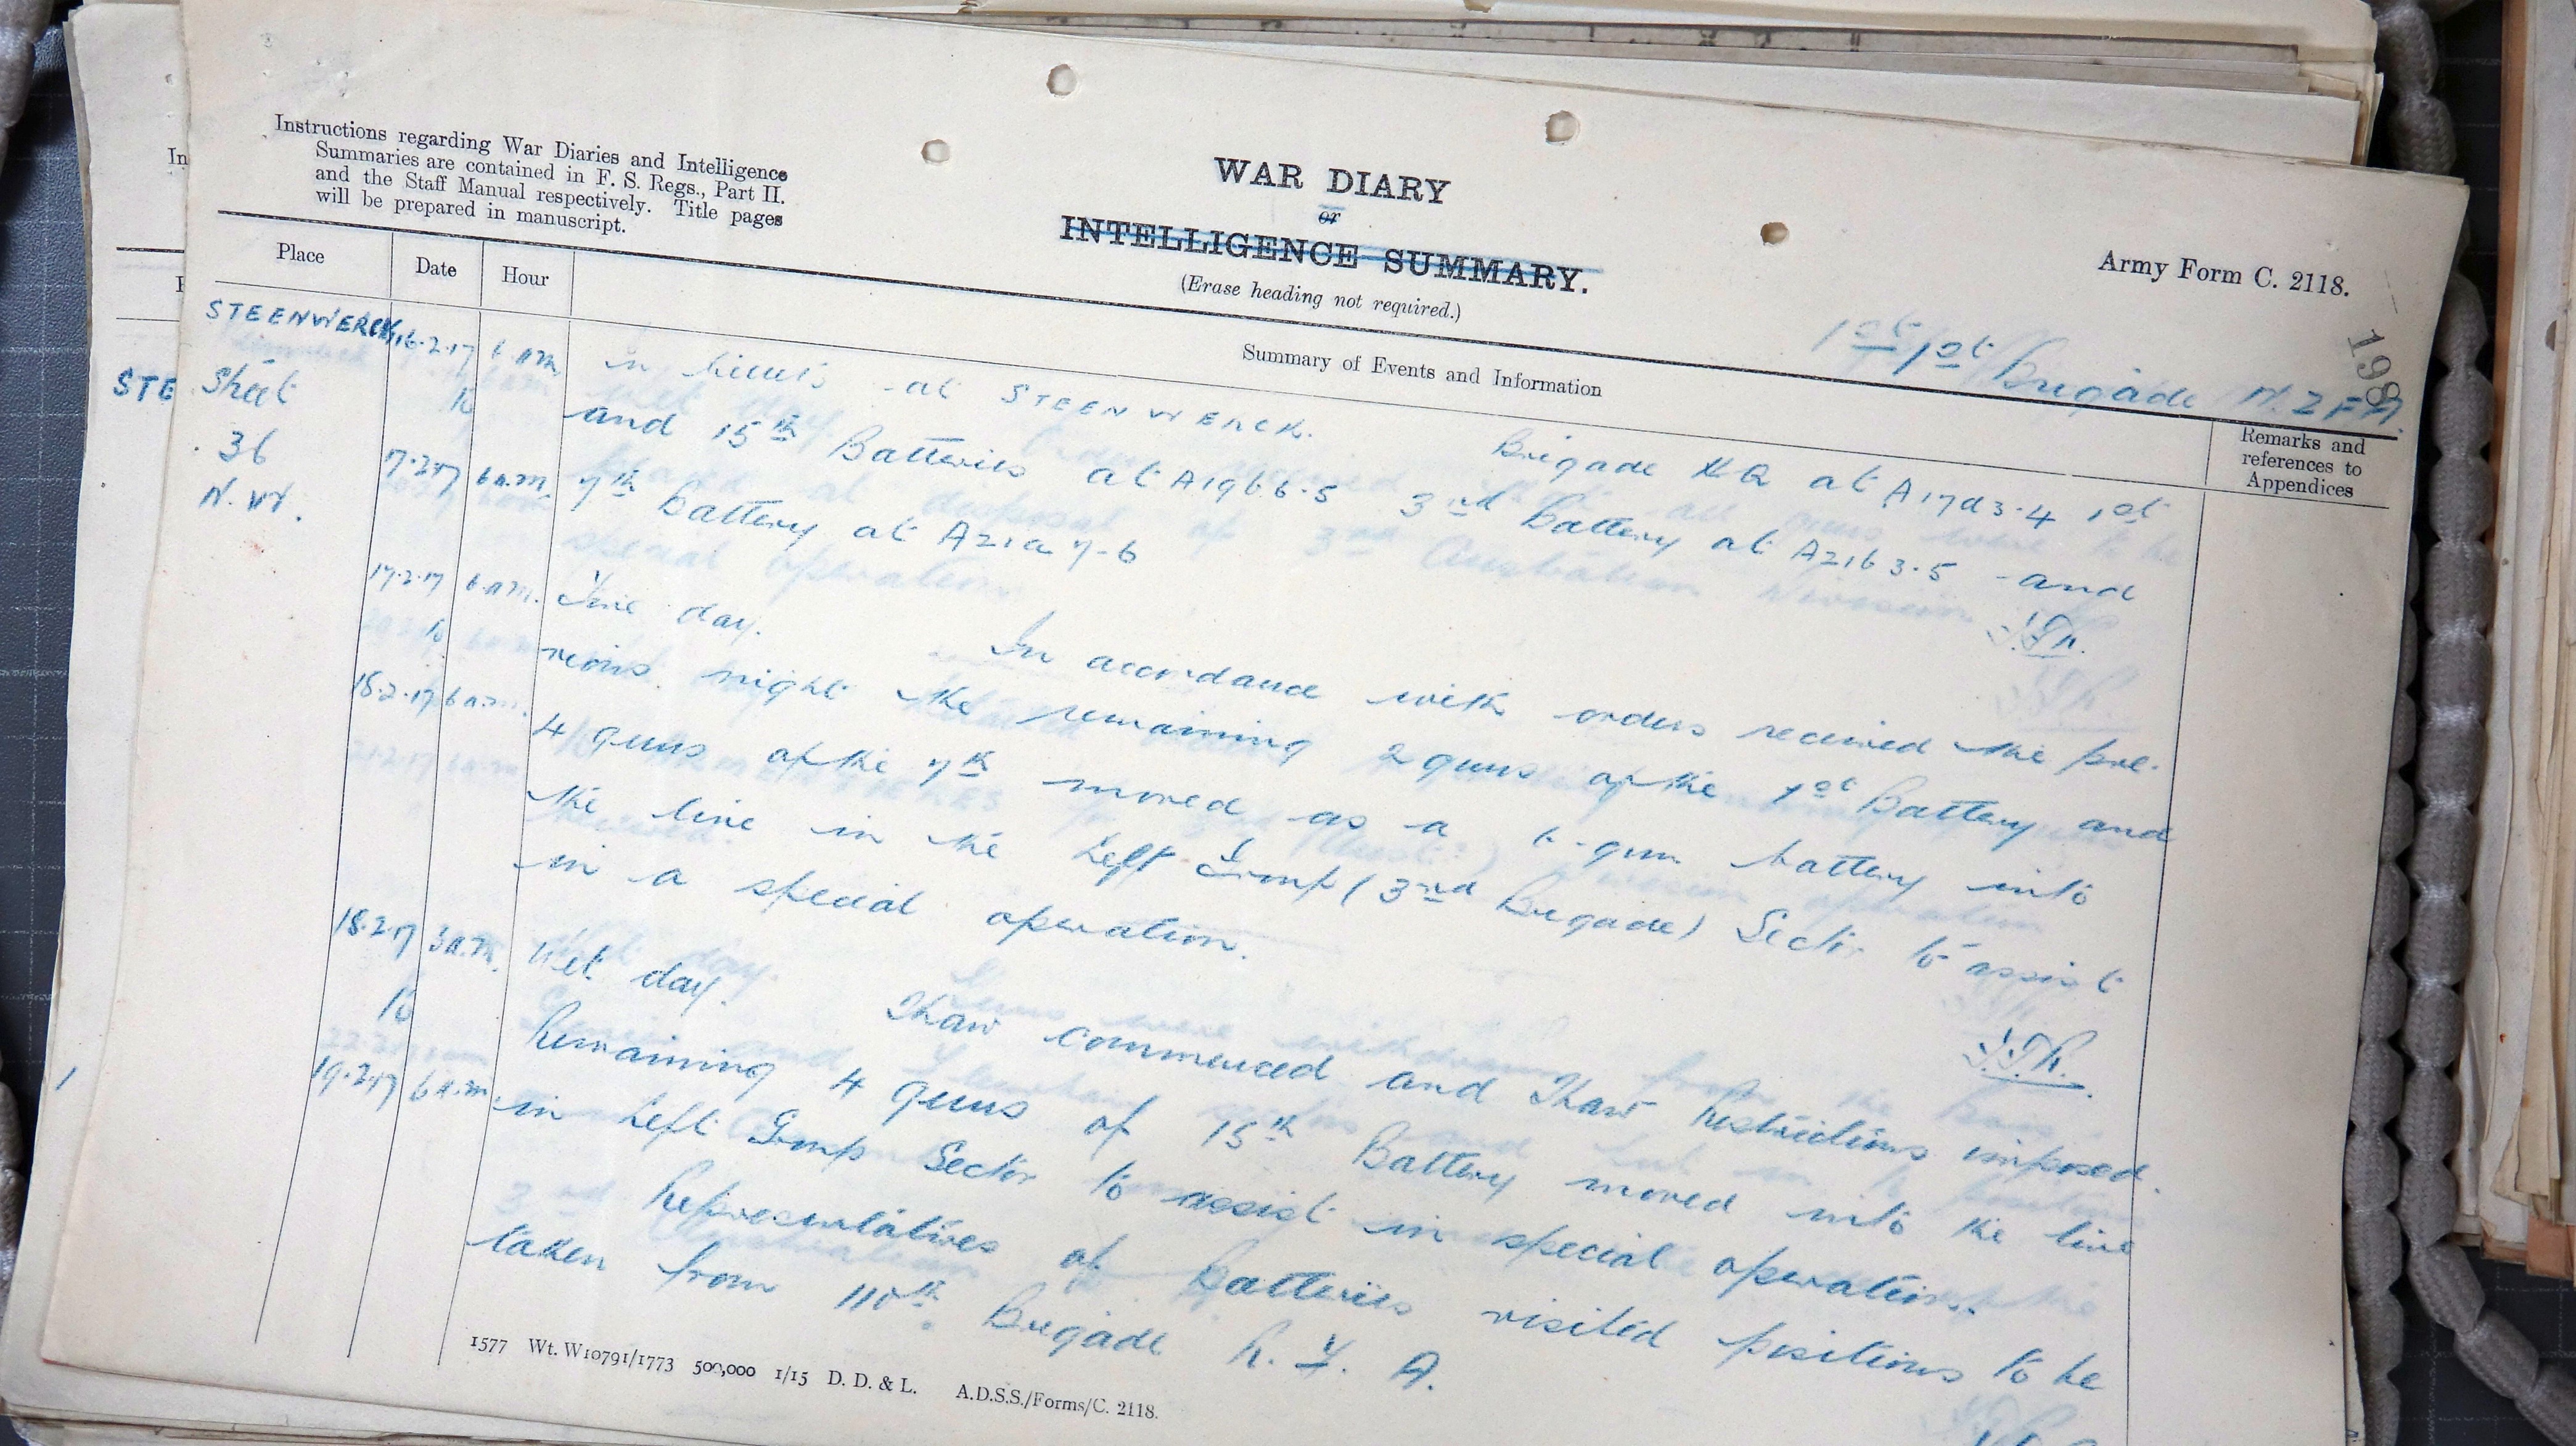 Instructions regarding War Diaries and Intelligence
Summaries are contained in F. S. Regs., Part II.
and the Staff Manual respectively. Title pages
will be prepared in manuscript.
WAR DIARY
or
INTELLIGENCE SUMMARY.
(Erase heading not required.)
Army Form C. 2118.
198
1st 1st Brigade N.Z.F.A.
Place
Date
Hour
Summary of Events and Information
Remarks and
references to
Appendices
STEENWERCK, 16.2.17 6 a.m. in billets at STEENWERCK. Brigade HQ at A17a3.4 1st
Sheet to and 15th Batteries at A19b6.5 3rd Battery at A21b3.5 and
36 17.2.17 6 a.m. 7th Battery at A21a7-6
N.W.
17.2.17 6 a.m. Fine day. In accordance with orders received the pre-
to vious night the remaining 2 guns of the 1st Battery and
18.2.17 6 a.m. 4 guns of the 7th moved as a 6-gun battery into
the line in the Left Group (3rd Brigade) Sector to assist
in a special operation.
18.2.17 Wet day. Thaw commenced and Thaw Restrictions imposed.
to Remaining 4 guns of 15th Battery moved into the line
19.2.17 6 a.m. in Left Group Sector to assist in special operation.
Representatives of Batteries visited positions to be
taken from 110th Brigade R.F.A.
STE
1577 Wt. W10791/1773 500,000 1/15 D. D. & L. A.D.S.S./Forms/C. 2118.